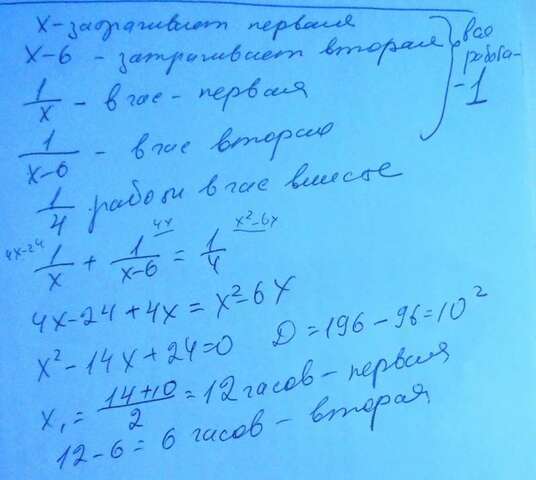 x - затрачивает первая
x-6 - затрачивает вторая
вся
работа-
- 1
1/x - в час - первая
1/(x-6) - в час вторая
1/4 работы в час вместе
4x-24
4x
x²-6x
1/x + 1/(x-6) = 1/4
4x-24+4x = x²-6x
x²-14x+24=0 D=196-96=10²
x₁ = (14+10)/2 = 12 часов - первая
12-6 = 6 часов - вторая